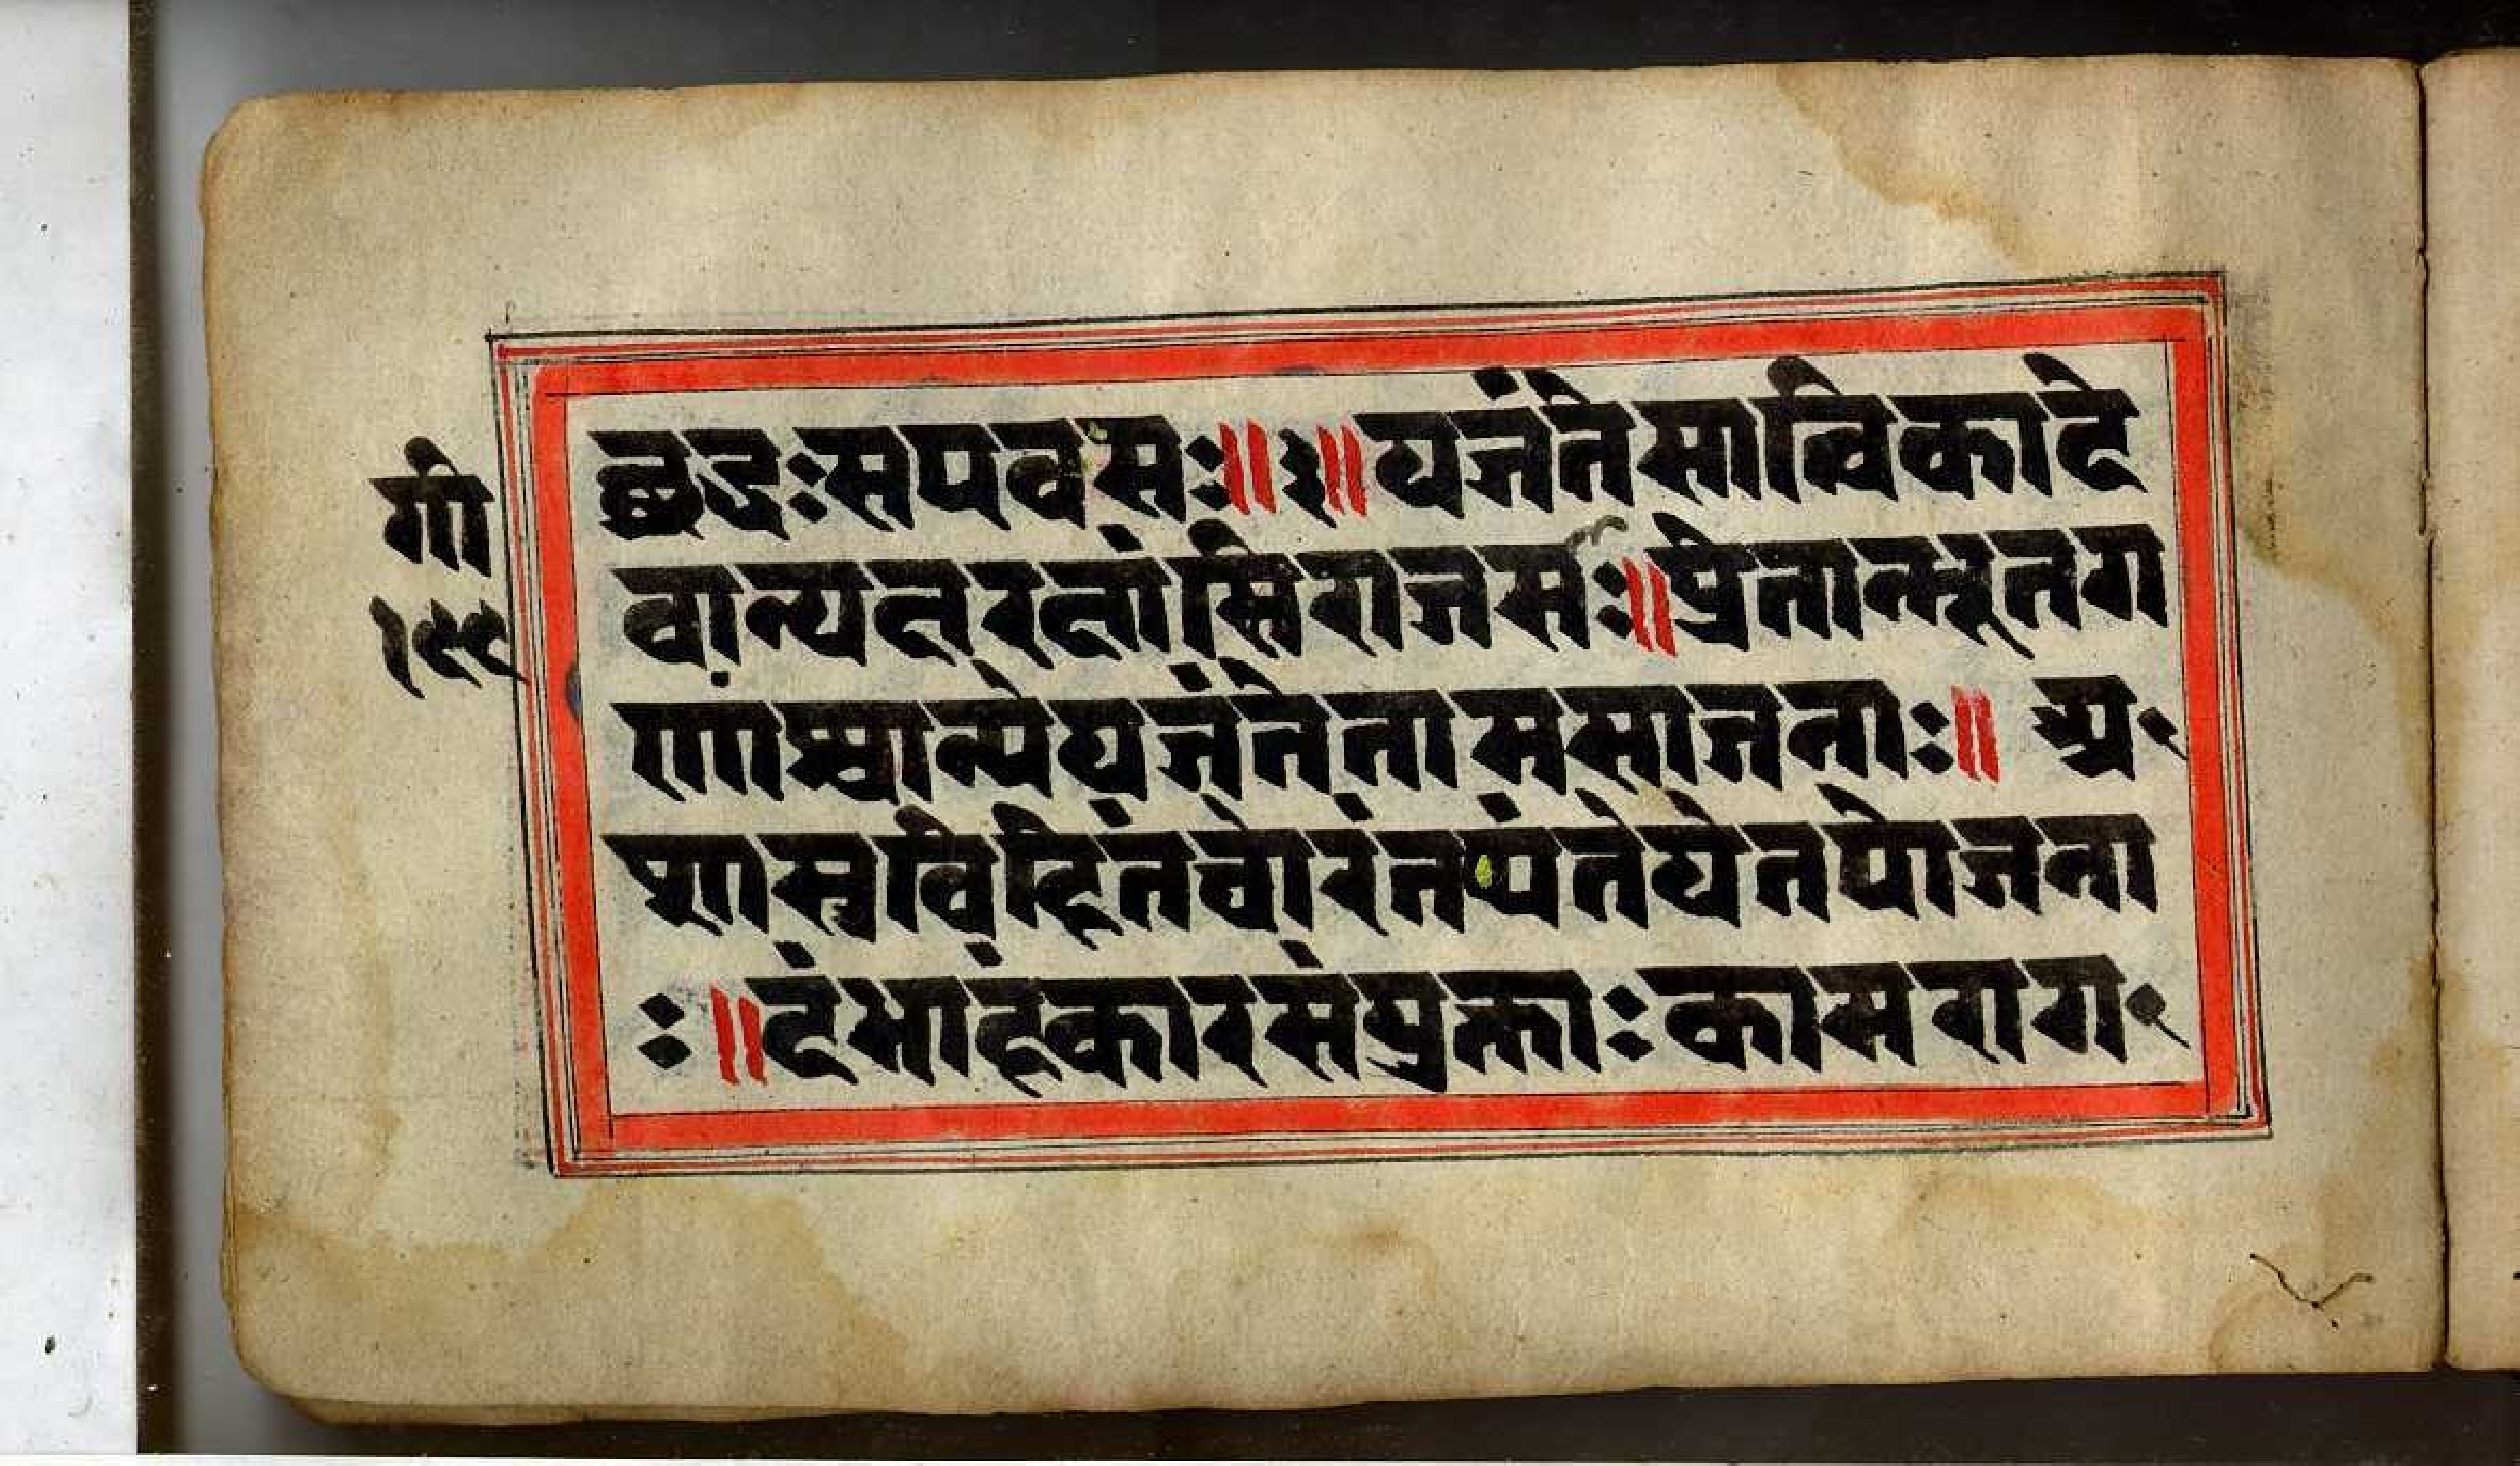 गी
१९९
छ्रद्धः स एव सः॥३॥ यजंते सात्विका दे
वान्यक्षरक्षांसि राजसः॥ प्रेतान्भूतग
णाश्चान्ये यजंते तामसा जनाः॥ अ
शास्त्रविहितं घोरं तप्यंते ये तपो जना
ः॥ दंभाहंकारसंयुक्ताः कामराग